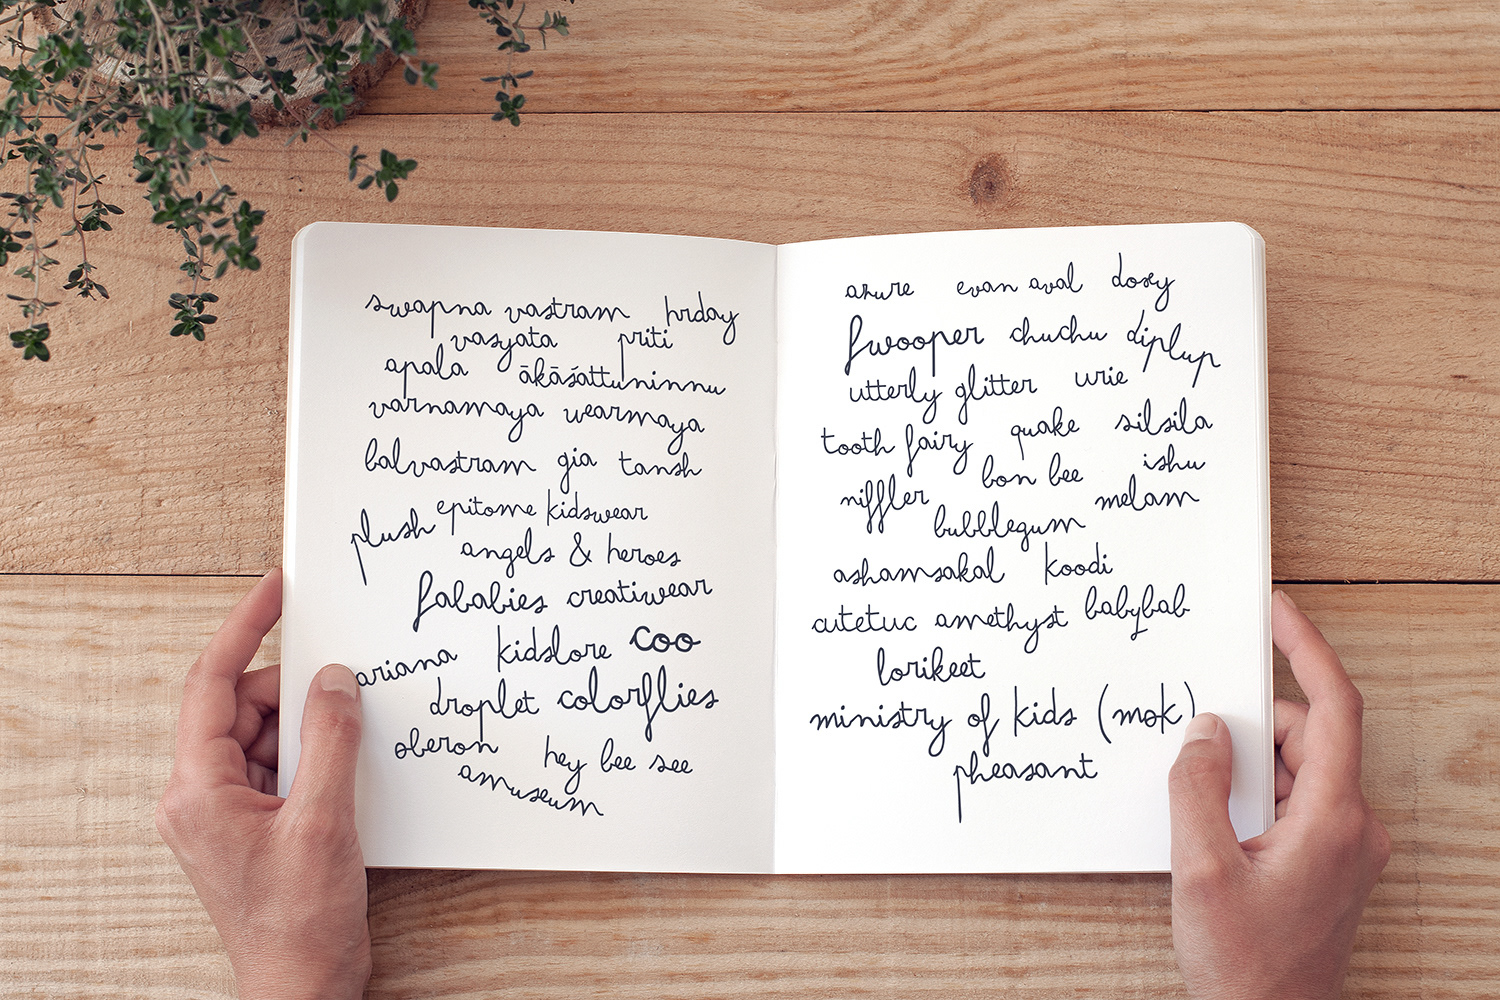 swapna vastram hrday
vasyata priti
apala ākāśattuninnu
varnamaya wearmaya
balvastram gia tansh
epitome kidswear
plush
angels & heroes
fababies creatiwear
kidslore coo
ariana
droplet colorflies
oberon hey bee see
amuseum
azure evan aval doxy
fwooper chuchu diplup
utterly glitter urie
tooth fairy quake silsila
bon bee ishu
niffler melam
bubblegum
ashamsakal koodi
cutetuc amethyst babybab
lorikeet
ministry of kids (mok)
pheasant